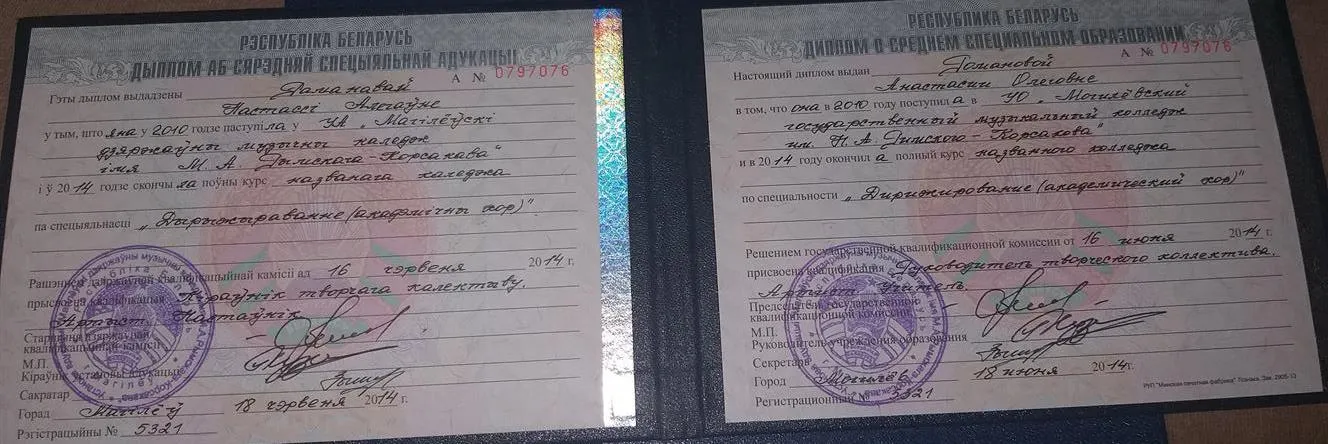 РЭСПУБЛІКА БЕЛАРУСЬ
ДЫПЛОМ АБ СЯРЭДНЯЙ СПЕЦЫЯЛЬНАЙ АДУКАЦЫІ
А № 0797076
Гэты дыплом выдадзены Раманавай
Настассі Алегаўне
у тым, што яна у 2010 годзе паступіла у УА „Магілёўскі
дзяржаўны музычны каледж
імя М. А. Рымскага-Корсакава"
і ў 2014 годзе скончыла поўны курс названага каледжа
па спецыяльнасці „Дырыжыраванне (акадэмічны хор)".
Рашэннем дзяржаўнай кваліфікацыйнай камісіі ад 16 чэрвеня 2014 г.
прысвоена кваліфікацыя Кіраўнік творчага калектыву.
Артыст. Настаўнік
Старшыня дзяржаўнай
кваліфікацыйнай камісіі
М.П.
Кіраўнік установы адукацыі
Сакратар
Горад Магілёў 18 чэрвеня 2014 г.
Рэгістрацыйны № 5321
РЕСПУБЛИКА БЕЛАРУСЬ
ДИПЛОМ О СРЕДНЕМ СПЕЦИАЛЬНОМ ОБРАЗОВАНИИ
А № 0797076
Настоящий диплом выдан Романовой
Анастасии Олеговне
в том, что она в 2010 году поступила в УО „Могилёвский
государственный музыкальный колледж
им. Н. А. Римского-Корсакова"
и в 2014 году окончила полный курс названного колледжа
по специальности „Дирижирование (академический хор)"
Решением государственной квалификационной комиссии от 16 июня 2014 г.
присвоена квалификация Руководитель творческого коллектива.
Артист. Учитель.
Председатель государственной
квалификационной комиссии
М.П.
Руководитель учреждения образования
Секретарь
Город Могилёв 18 июня 2014 г.
Регистрационный № 5321
РУП "Минская печатная фабрика" Гознака. Зак. 2905-13